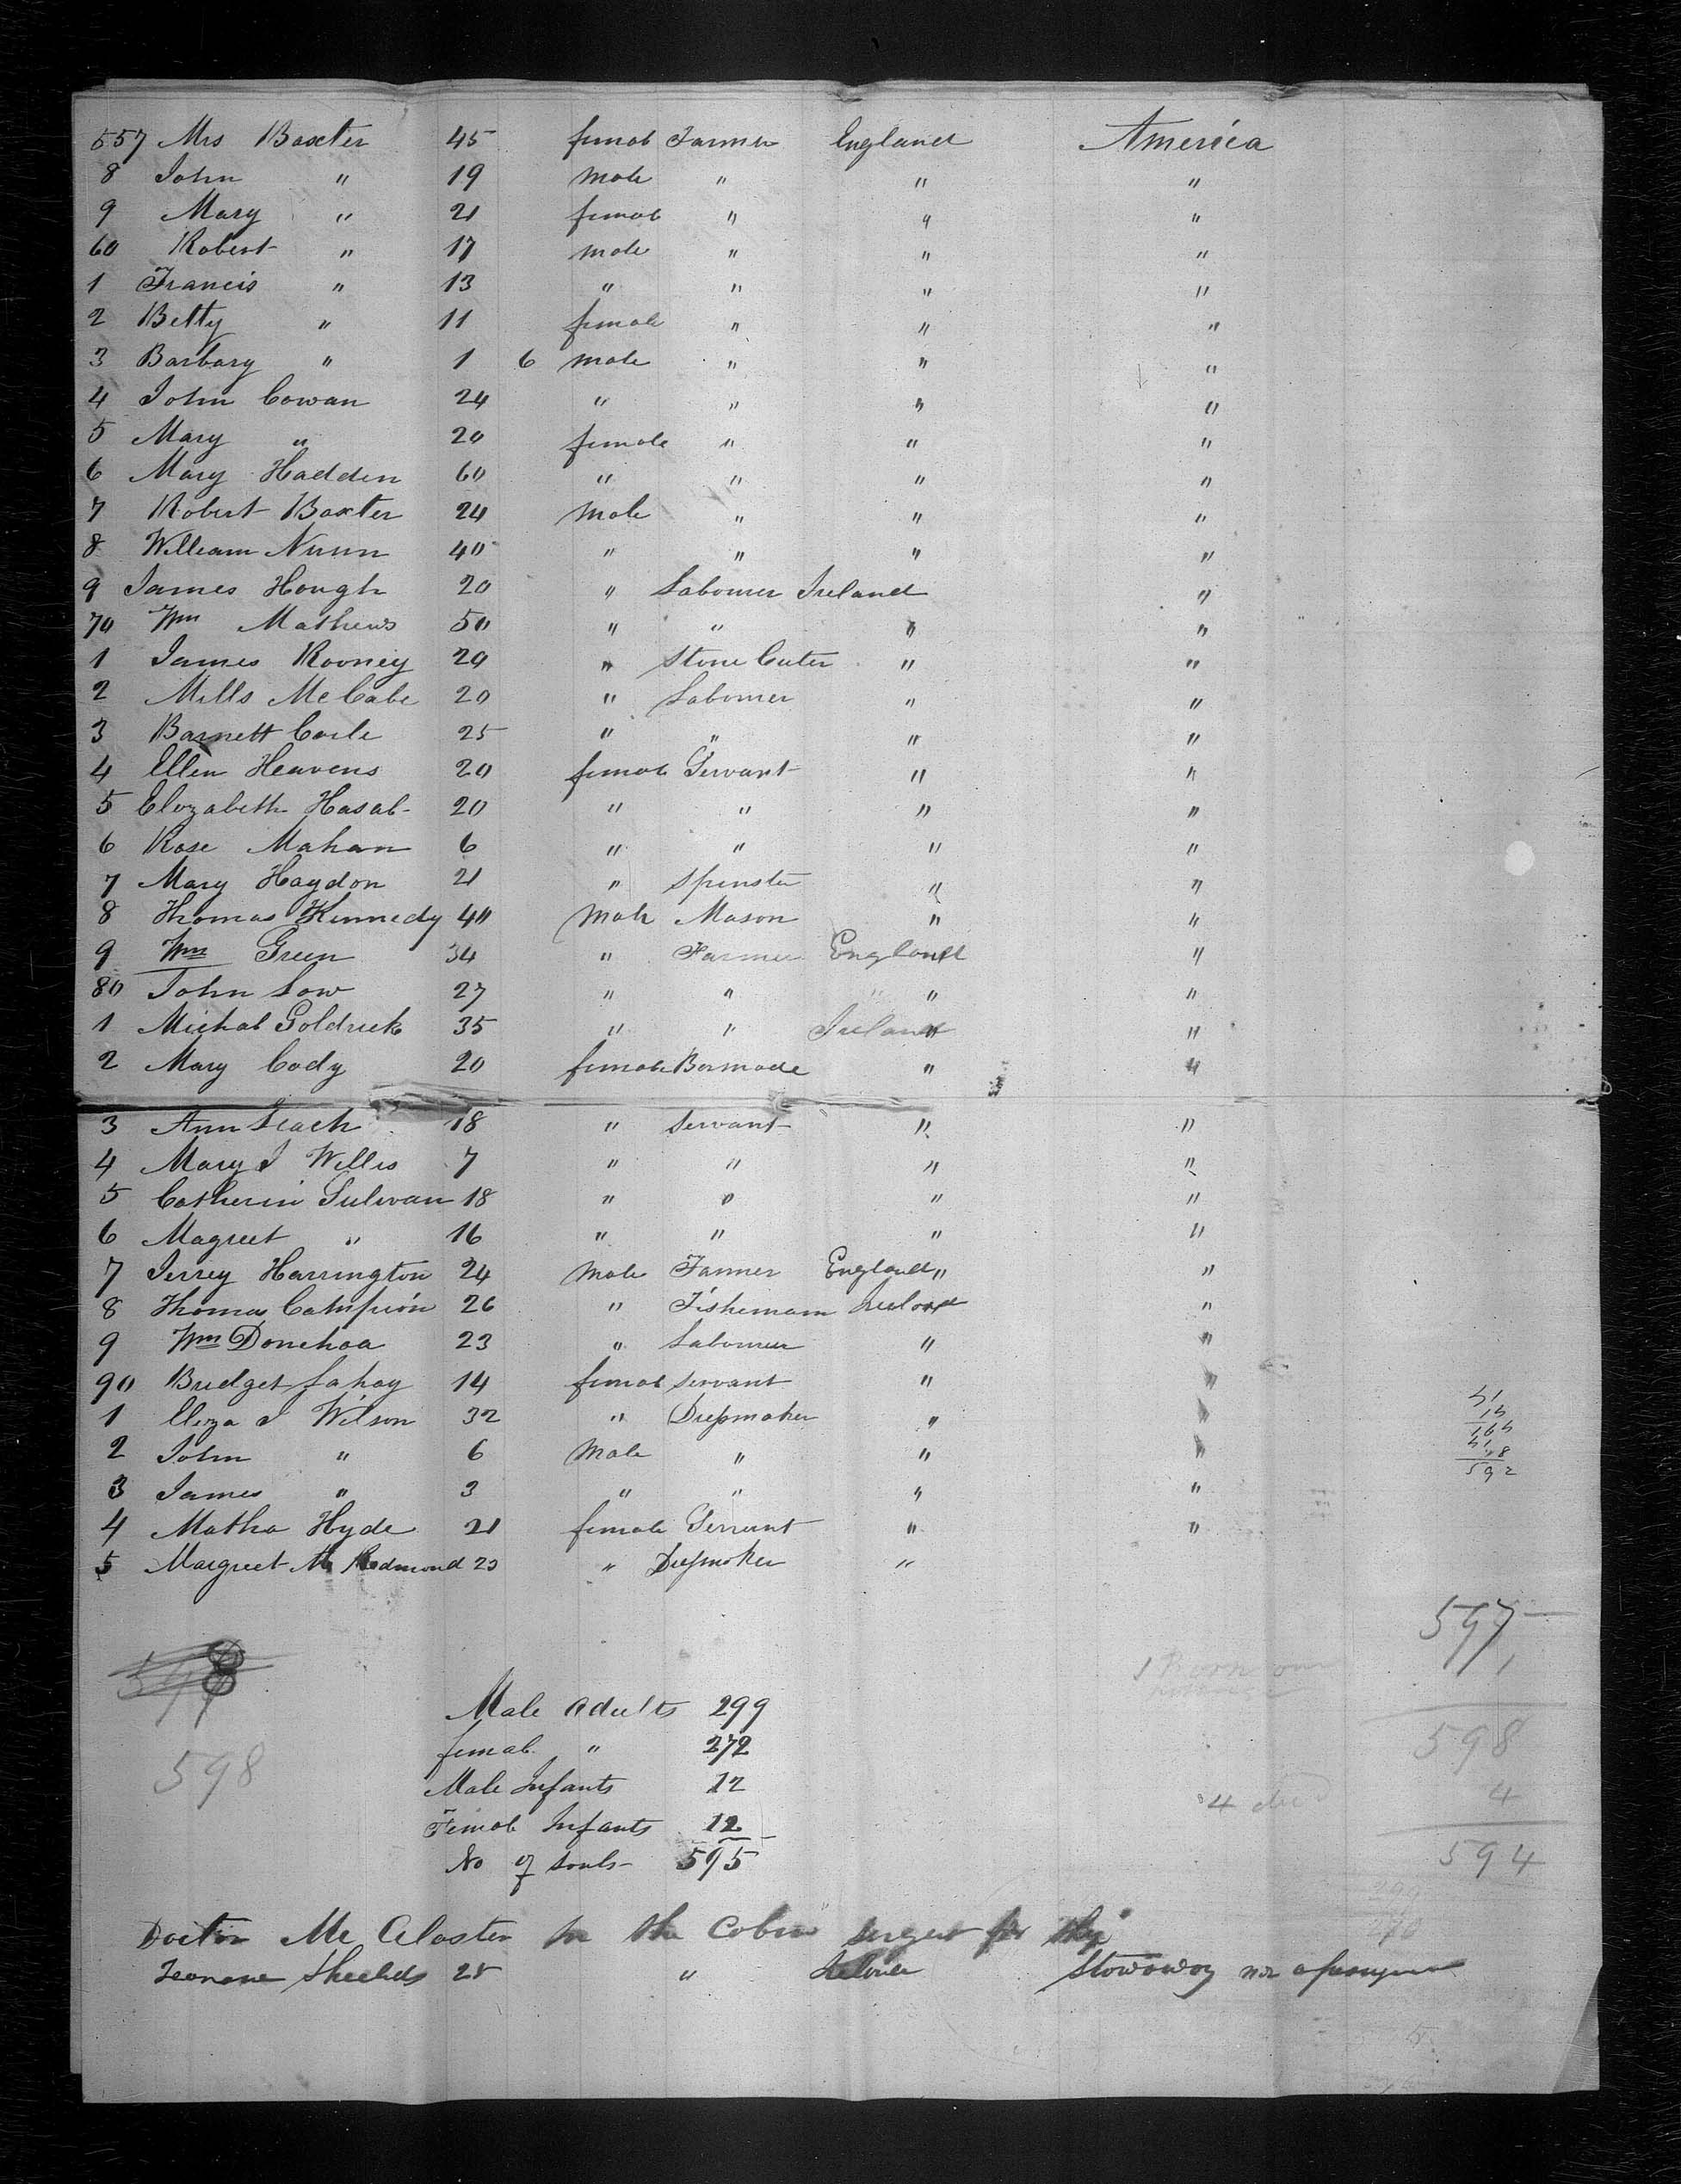 557 Mrs Baxter 45 femal Farmer England America
8 John " 19 male " " "
9 Mary " 21 femal " " "
60 Robert " 17 male " " "
1 Francis " 13 " " " "
2 Betty " 11 female " " "
3 Barbary " 1 6 male " " "
4 John Cowan 24 " " " "
5 Mary " 20 female " " "
6 Mary Hadden 60 " " " "
7 Robert Baxter 24 male " " "
8 William Nunn 40 " " " "
9 James Hough 20 " Labourer Ireland "
70 Wm Mathews 50 " " " "
1 James Rooney 20 " Stone Cuter " "
2 Mills McCabe 20 " Labourer " "
3 Barnett Coile 25 " " " "
4 Ellen Heavens 20 femal Servant " "
5 Elizabeth 20 " " " "
6 Rose Mahan 6 " " " "
7 Mary Haydon 21 " Spinster " "
8 Thomas Kennedy 40 Male Mason " "
9 Wm Green 34 " Farmer England "
80 John Low 27 " " " "
1 Michal Goldrick 35 " " Ireland "
2 Mary Cody 20 female " "
3 Ann Leach 18 " Servant " "
4 Mary J Willis 7 " " " "
5 Catherin Sulivan 18 " " " "
6 Magreet " 16 " " " "
7 Jerrey Harrington 24 Male Farmer England " "
8 Thomas Campion 26 " Fisherman Ireland "
9 Wm Donehoa 23 " Labourer " "
90 Bridget Lahay 14 femal Servant " "
1 Eliza J Wilson 32 " Dressmaker " "
2 John " 6 Male " " "
3 James " 3 " " " "
4 Matha Hyde 21 female Servant " "
5 Margreet Mc Redmond 23 " Dressmaker "
597
1 Born on
1
598
598
Male Adults 299
femal " 272
Male Infants 12
Femal Infants 12
No of souls 595
4 died
4
594
Docter Mc Alaster in the Cabin
28 " Ireland Stowaway not a passenger